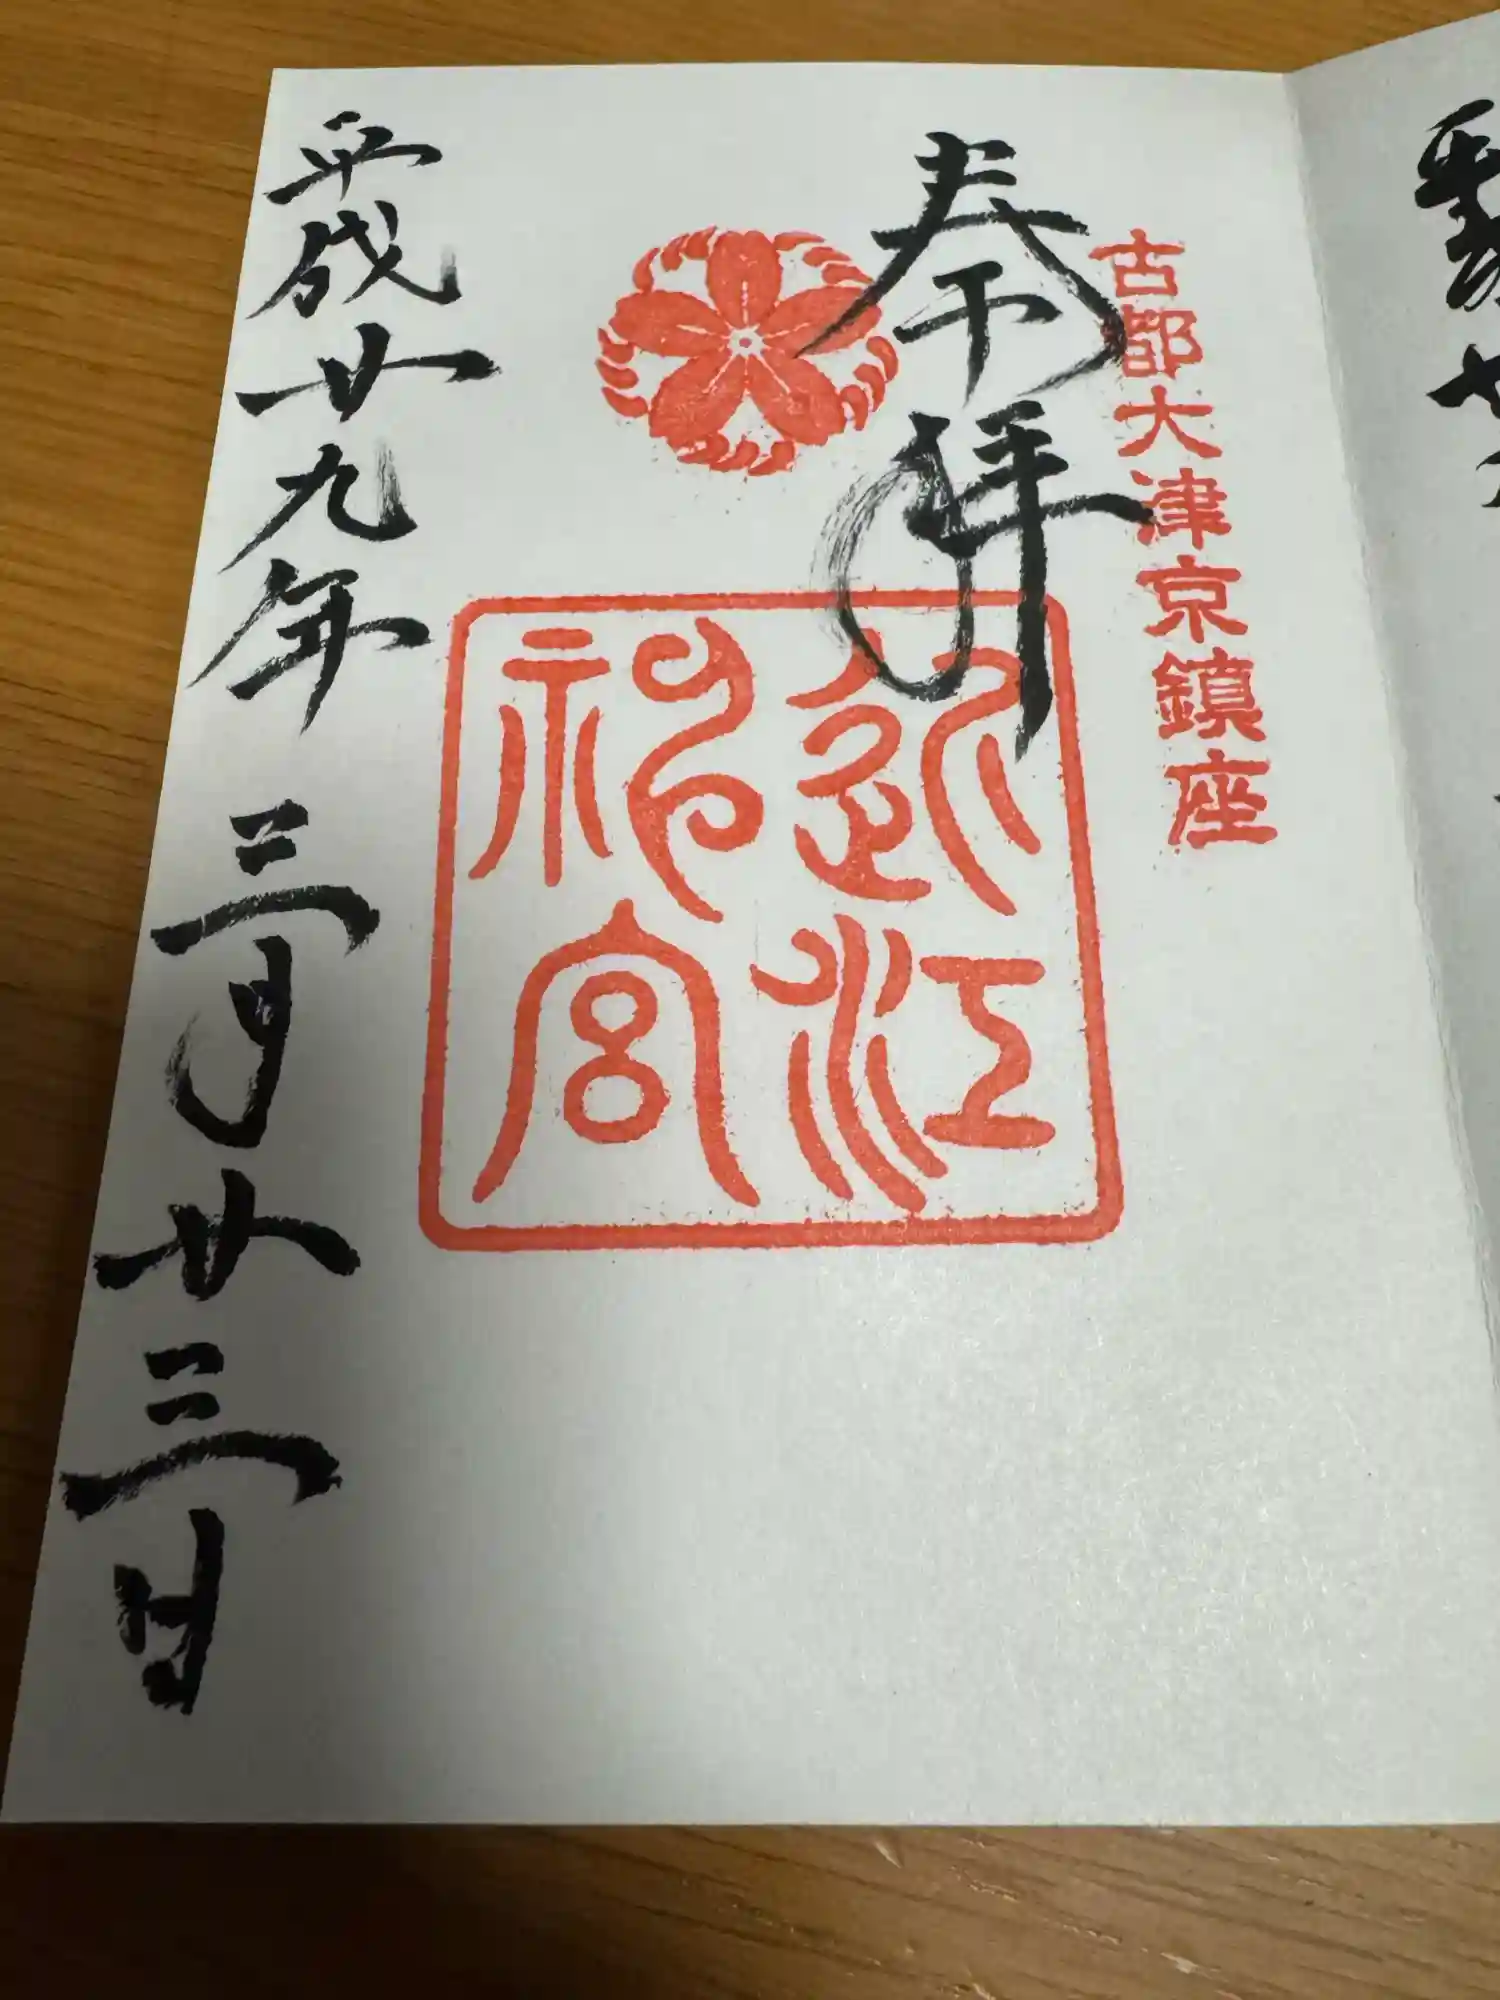 古都大津京鎮座
奉拝
近江神宮
平成廿九年三月廿三日